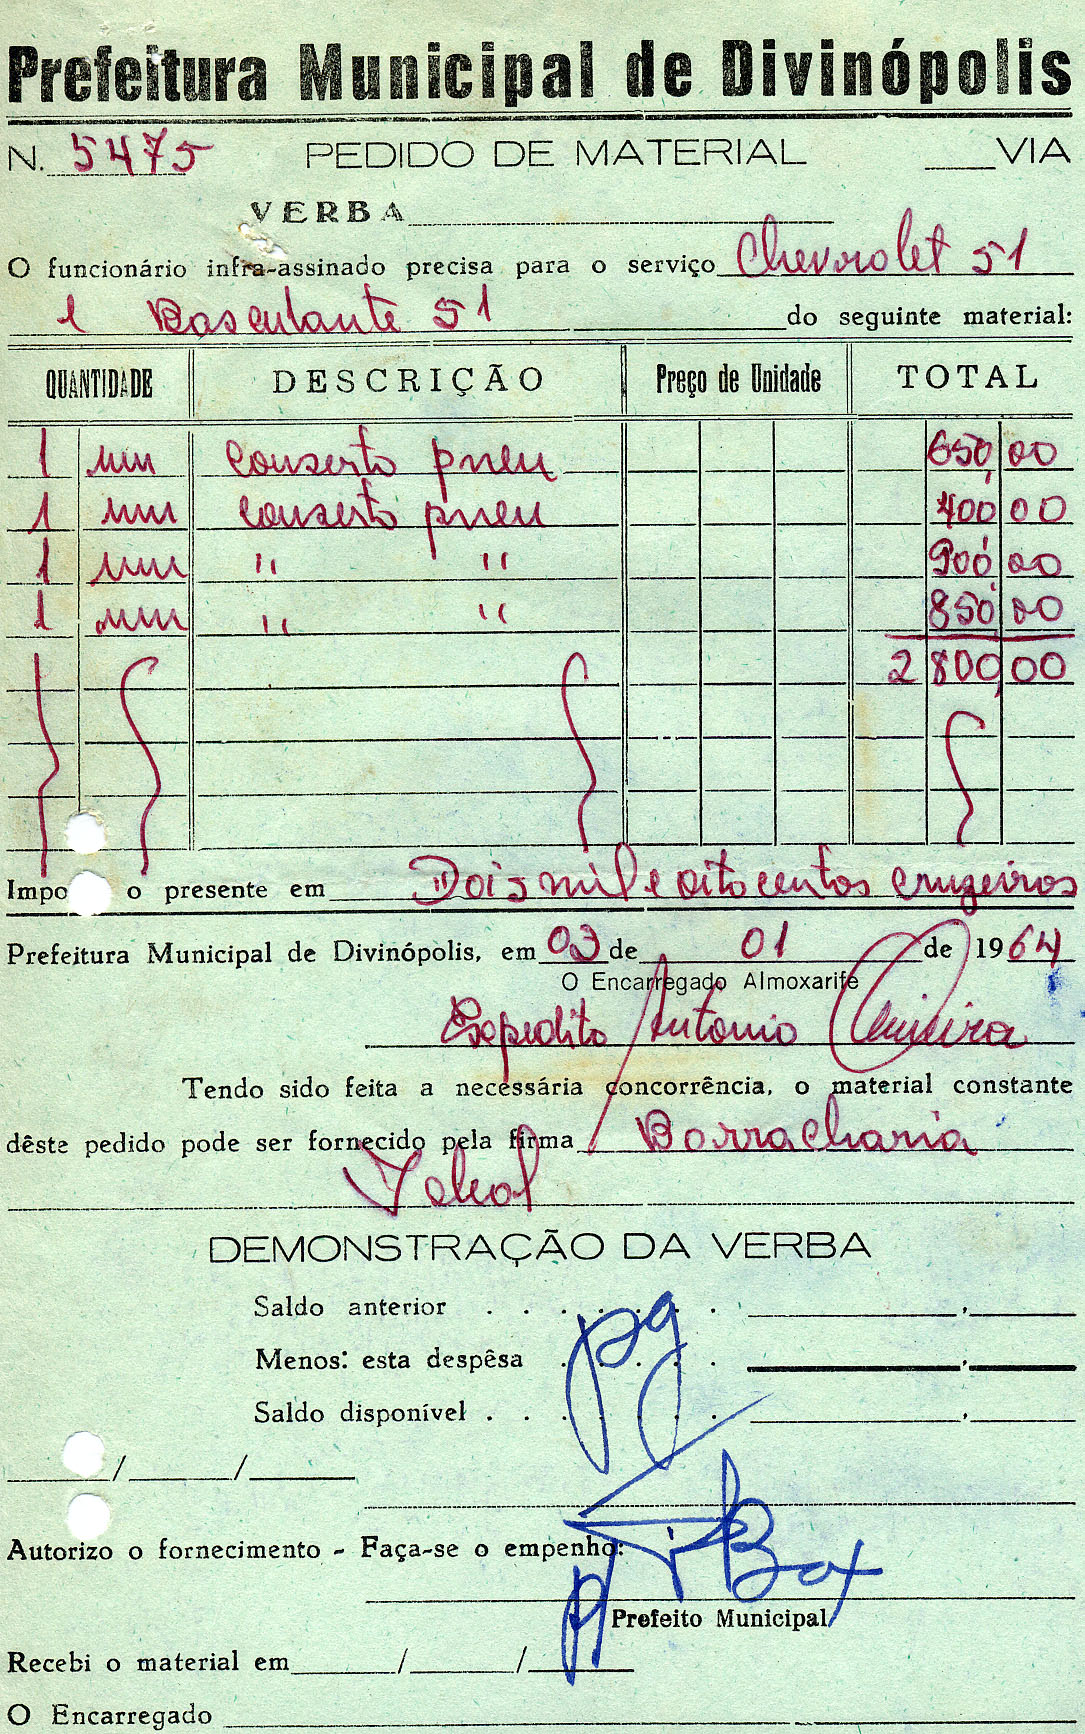 Prefeitura Municipal de Divinópolis
N. 5475 PEDIDO DE MATERIAL VIA
VERBA
O funcionário infra-assinado precisa para o serviço Chevrolet 51
e Basculante 51 do seguinte material:
QUANTIDADE DESCRIÇÃO Preço de Unidade TOTAL
1 um conserto pneu 650,00
1 um conserto pneu 400,00
1 um " " 900,00
1 um " " 850,00
2 800,00
Impo o presente em Dois mil e oitocentos cruzeiros
Prefeitura Municipal de Divinópolis, em 03 de 01 de 1964
O Encarregado Almoxarife
Expedito Antonio
Tendo sido feita a necessária concorrência, o material constante
dêste pedido pode ser fornecido pela firma Borracharia
DEMONSTRAÇÃO DA VERBA
Saldo anterior . . . . . . ,
Menos: esta despêsa . . . . ,
Saldo disponível . . . . . . ,
/ /
Autorizo o fornecimento - Faça-se o empenho:
Prefeito Municipal
Recebi o material em / /
O Encarregado